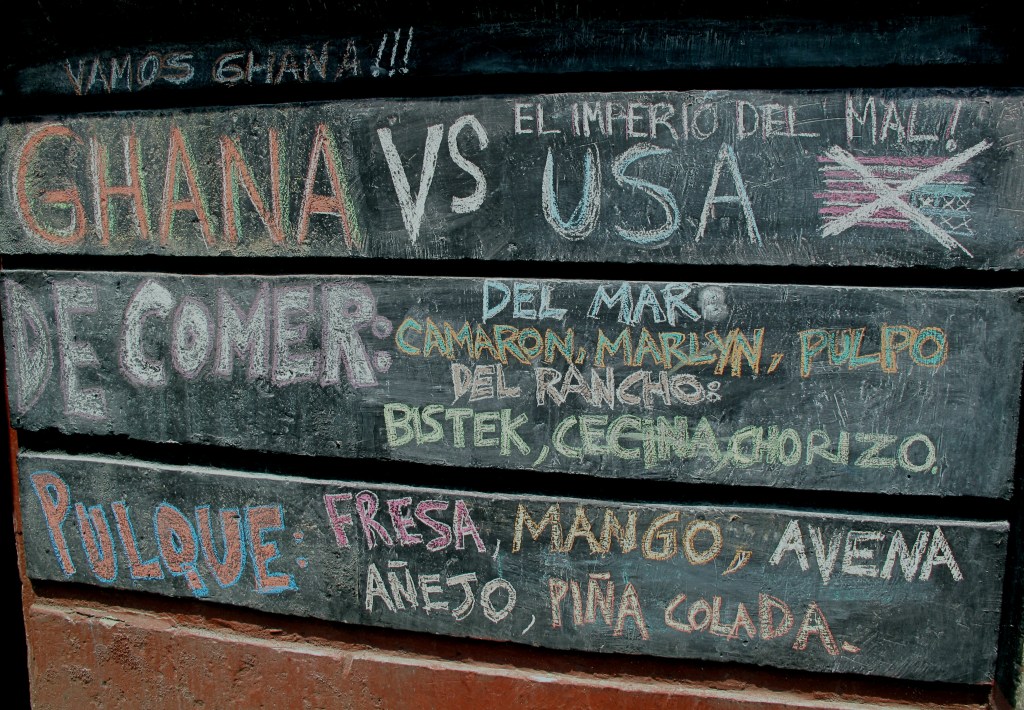 VAMOS GHANA!!!
GHANA VS USA
EL IMPERIO DEL MAL!
DE COMER:
DEL MAR:
CAMARON, MARLYN, PULPO
DEL RANCHO:
BISTEK, CECINA, CHORIZO.
PULQUE: FRESA, MANGO, AVENA
AÑEJO, PIÑA COLADA.